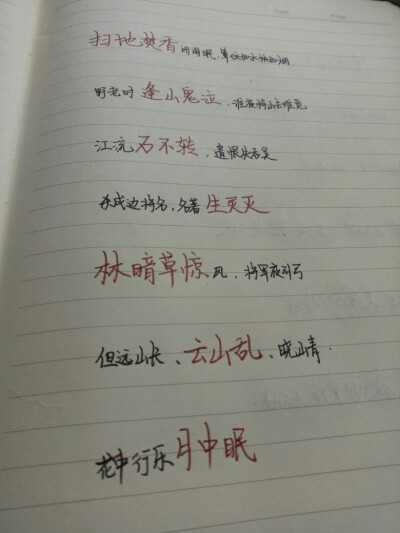 扫地焚香闭阁眠,簟纹如水帐如烟
野老时逢山鬼泣,谁夜将山去难
江流石不转,遗恨失吞吴
杀成边将名,名著生灵灭
林暗草惊风,将军夜引弓
但远山长、云山乱、晓山青.
花中行乐月中眠